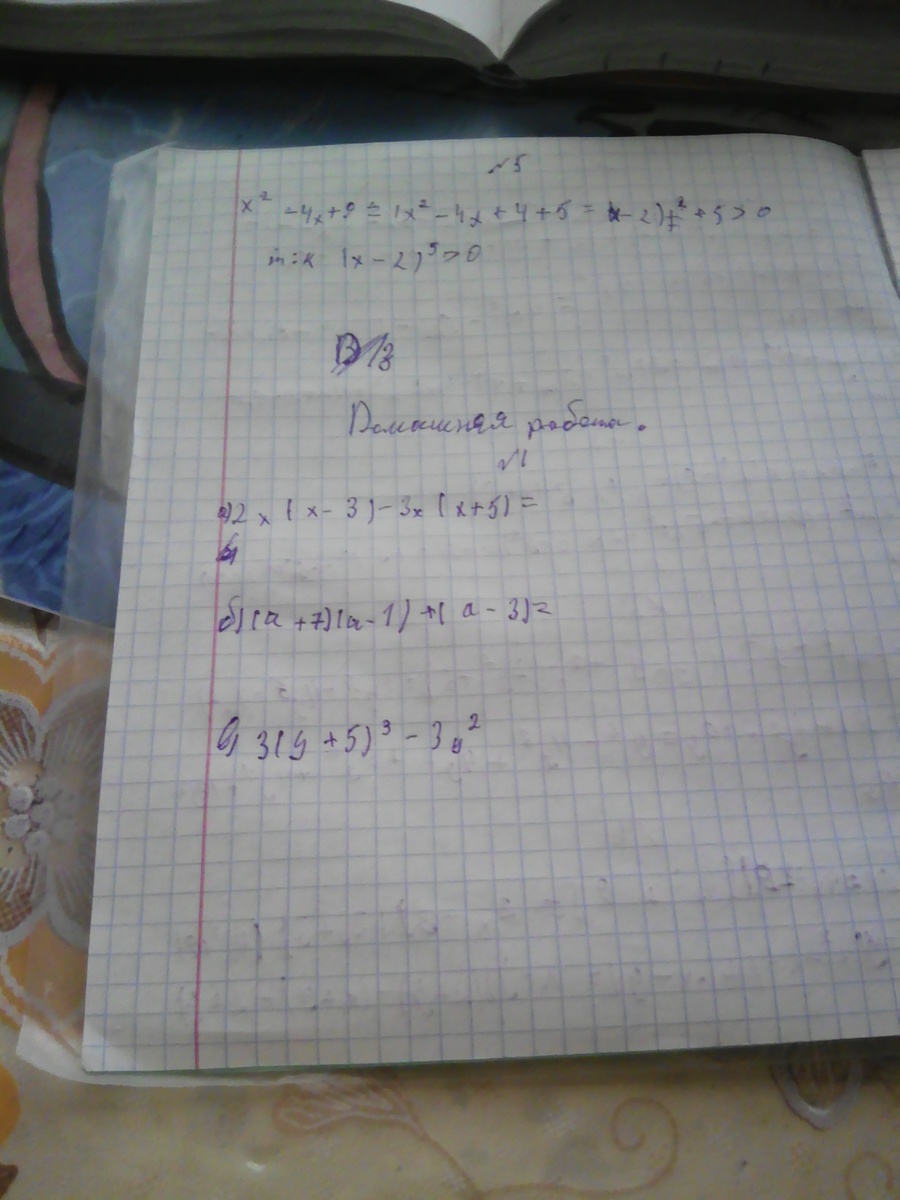 №5
x² - 4x + 9 = (x² - 4x + 4 + 5 = (x - 2)² + 5 > 0
т.к (x - 2)² > 0
В 13
Домашняя работа.
№1
а) 2x (x - 3) - 3x (x + 5) =
б) (a + 7)(a - 1) + (a - 3) =
в) 3(y + 5)³ - 3y²